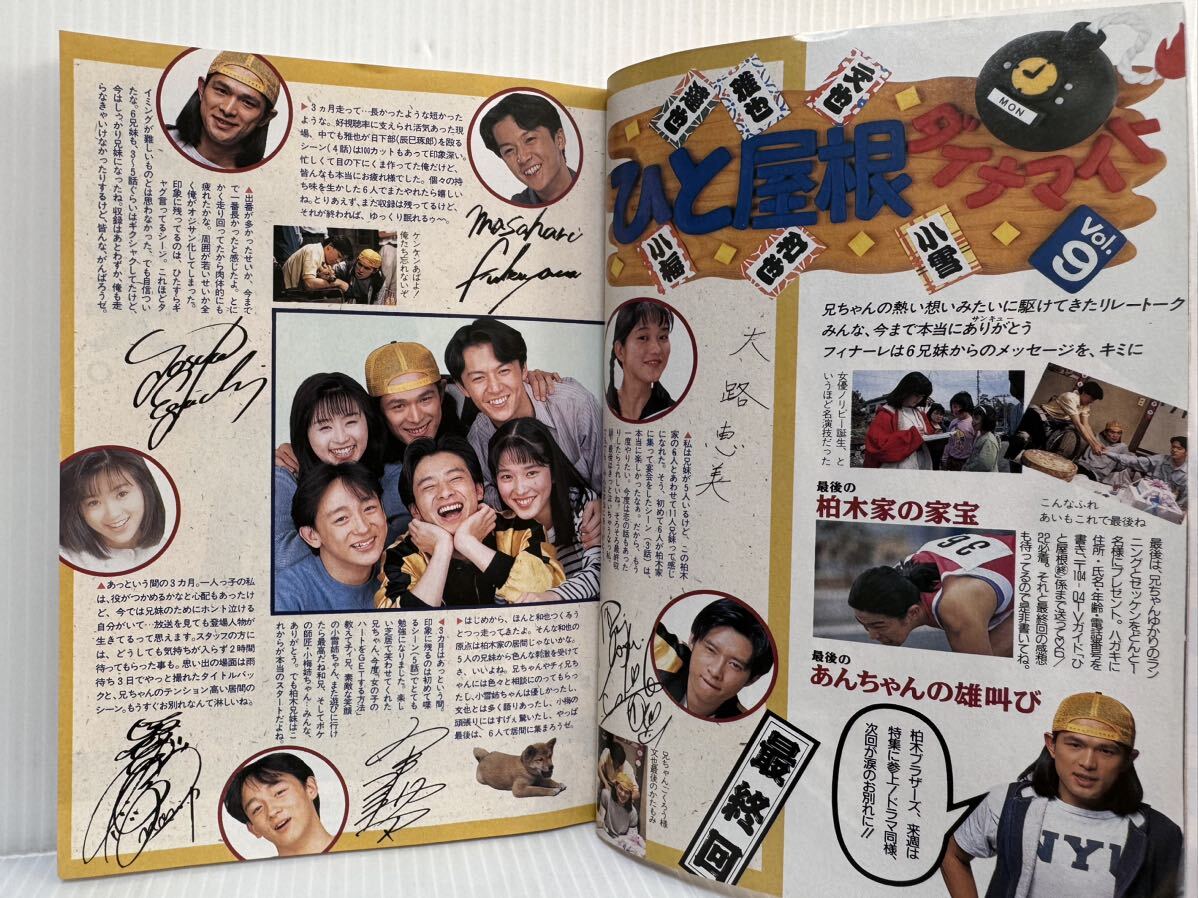 MON
雅也
文也
ひと屋根
ダイナマイト
小梅
和也
小雪
Vol.9
兄ちゃんの熱い想いみたいに駆けてきたリレートーク
みんな、今まで本当にありがとう
サンキュー
フィナーレは6兄妹からのメッセージを、キミに
女優ノリピー誕生、と
いうほど名演技だった
こんなふれ
あいもこれで最後ね
最後の
柏木家の家宝
最後は、兄ちゃんゆかりのラン
ニングとゼッケンをどんと一
名様にプレゼント。ハガキに
住所・氏名・年齢・電話番号を
書き、〒104-04TVガイド「ひ
と屋根㊡」係まで送ってね。
22必着。それと最終回の感想
も待ってるので是非書いてね。
最後の
あんちゃんの雄叫び
柏木ブラザーズ、来週は
特集に参上!ドラマ同様、
次回が涙のお別れに!!
NY
大路恵美
▲私は兄妹が5人いるけど、この柏木
家の6人とあわせて11人兄妹って感じ
になれた。そう、初めて6人が柏木家
に集って宴会をしたシーン(3話)は、
本当に楽しかったなぁ。だから、もう
一度やりたい。今度は恋の話もあった
りしたらうれしいね。そろそろ最終収
兄ちゃんごくろう様
文也最後のかたもみ
最終回
▶3ヵ月走って…長かったような短かった
ような。好視聴率に支えられ活気あった現
場、中でも雅也が日下部(辰巳琢郎)を殴る
シーン(4話)は100カットもあって印象深い。
忙しくて目の下にくま作ってた俺だけど、
皆んなも本当にお疲れ様でした。個々の持
ち味を生かした6人でまたやれたら嬉しい
ね。とりあえず、まだ収録は残ってるけど、
それが終われば、ゆっくり眠れるゥ〜。
Masaharu
Fukuyama
ケンケンあばよ!
俺たち忘れないぞ
▲出番が多かったせいか、今まで
で一番長かったと感じたよ。とに
かく走り回ってたから肉体的にも
疲れたかな。周囲が若いせいか全
く俺がオジサン化してしまった。
印象に残ってるのは、ひたすらギ
ャグ言ってるシーン。これほどタ
イミングが難しいものとは思わなかった。でも自信つい
たな。6兄妹も、3〜5話ぐらいはギクシャクしてたけど、
今はしっかり兄妹になったね。収録はあとわずか、俺も走
らなきゃいけなかったりするけど、皆んな、がんばろうぜ。
Yosuke
Eguchi
▲あっという間の3カ月。一人っ子の私
は、役がつかめるかなと心配もあったけ
ど、今では兄妹のためにホント泣ける
自分がいて…放送を見ても登場人物が
生きてるって思えます。スタッフの方に
は、どうしても気持ちが入らず2時間
待ってもらった事も。思い出の場面は雨
待ち3日でやっと撮れたタイトルバッ
クと、兄ちゃんのテンション高い居間の
シーン。もうすぐお別れなんて淋しいね。
◀3カ月はあっという間。
印象に残るのは初めて喋
るシーン(5話)でとても
勉強になりました。楽し
い芝居で笑わせてくれた
兄ちゃん、今度〝女の子の
ハートをGETする方法〟
教えて。チィ兄、素敵な笑顔
の小雪姉ちゃん、また遊びに行け
たら最高だね和兄、そしてボケ
の師匠・小梅姉ちゃん…みんな、
ありがとう。でも柏木兄妹はこ
れからが本当のスタートだよね。
▶はじめから、ほんと和也つくろう
とつっ走ってきたよ。そんな和也の
原点は柏木家の居間じゃないかな。
5人の兄妹から色んな刺激を受けて
さ、いいよね。兄ちゃんやチィ兄ち
ゃんには色々と相談にのってもらっ
たし、小雪姉ちゃんは優しかったし、
文也とは多く語りあったし、小梅の
頑張りにはすげぇ驚いたし、やっぱ
最後は、6人で居間に集まろうぜ。